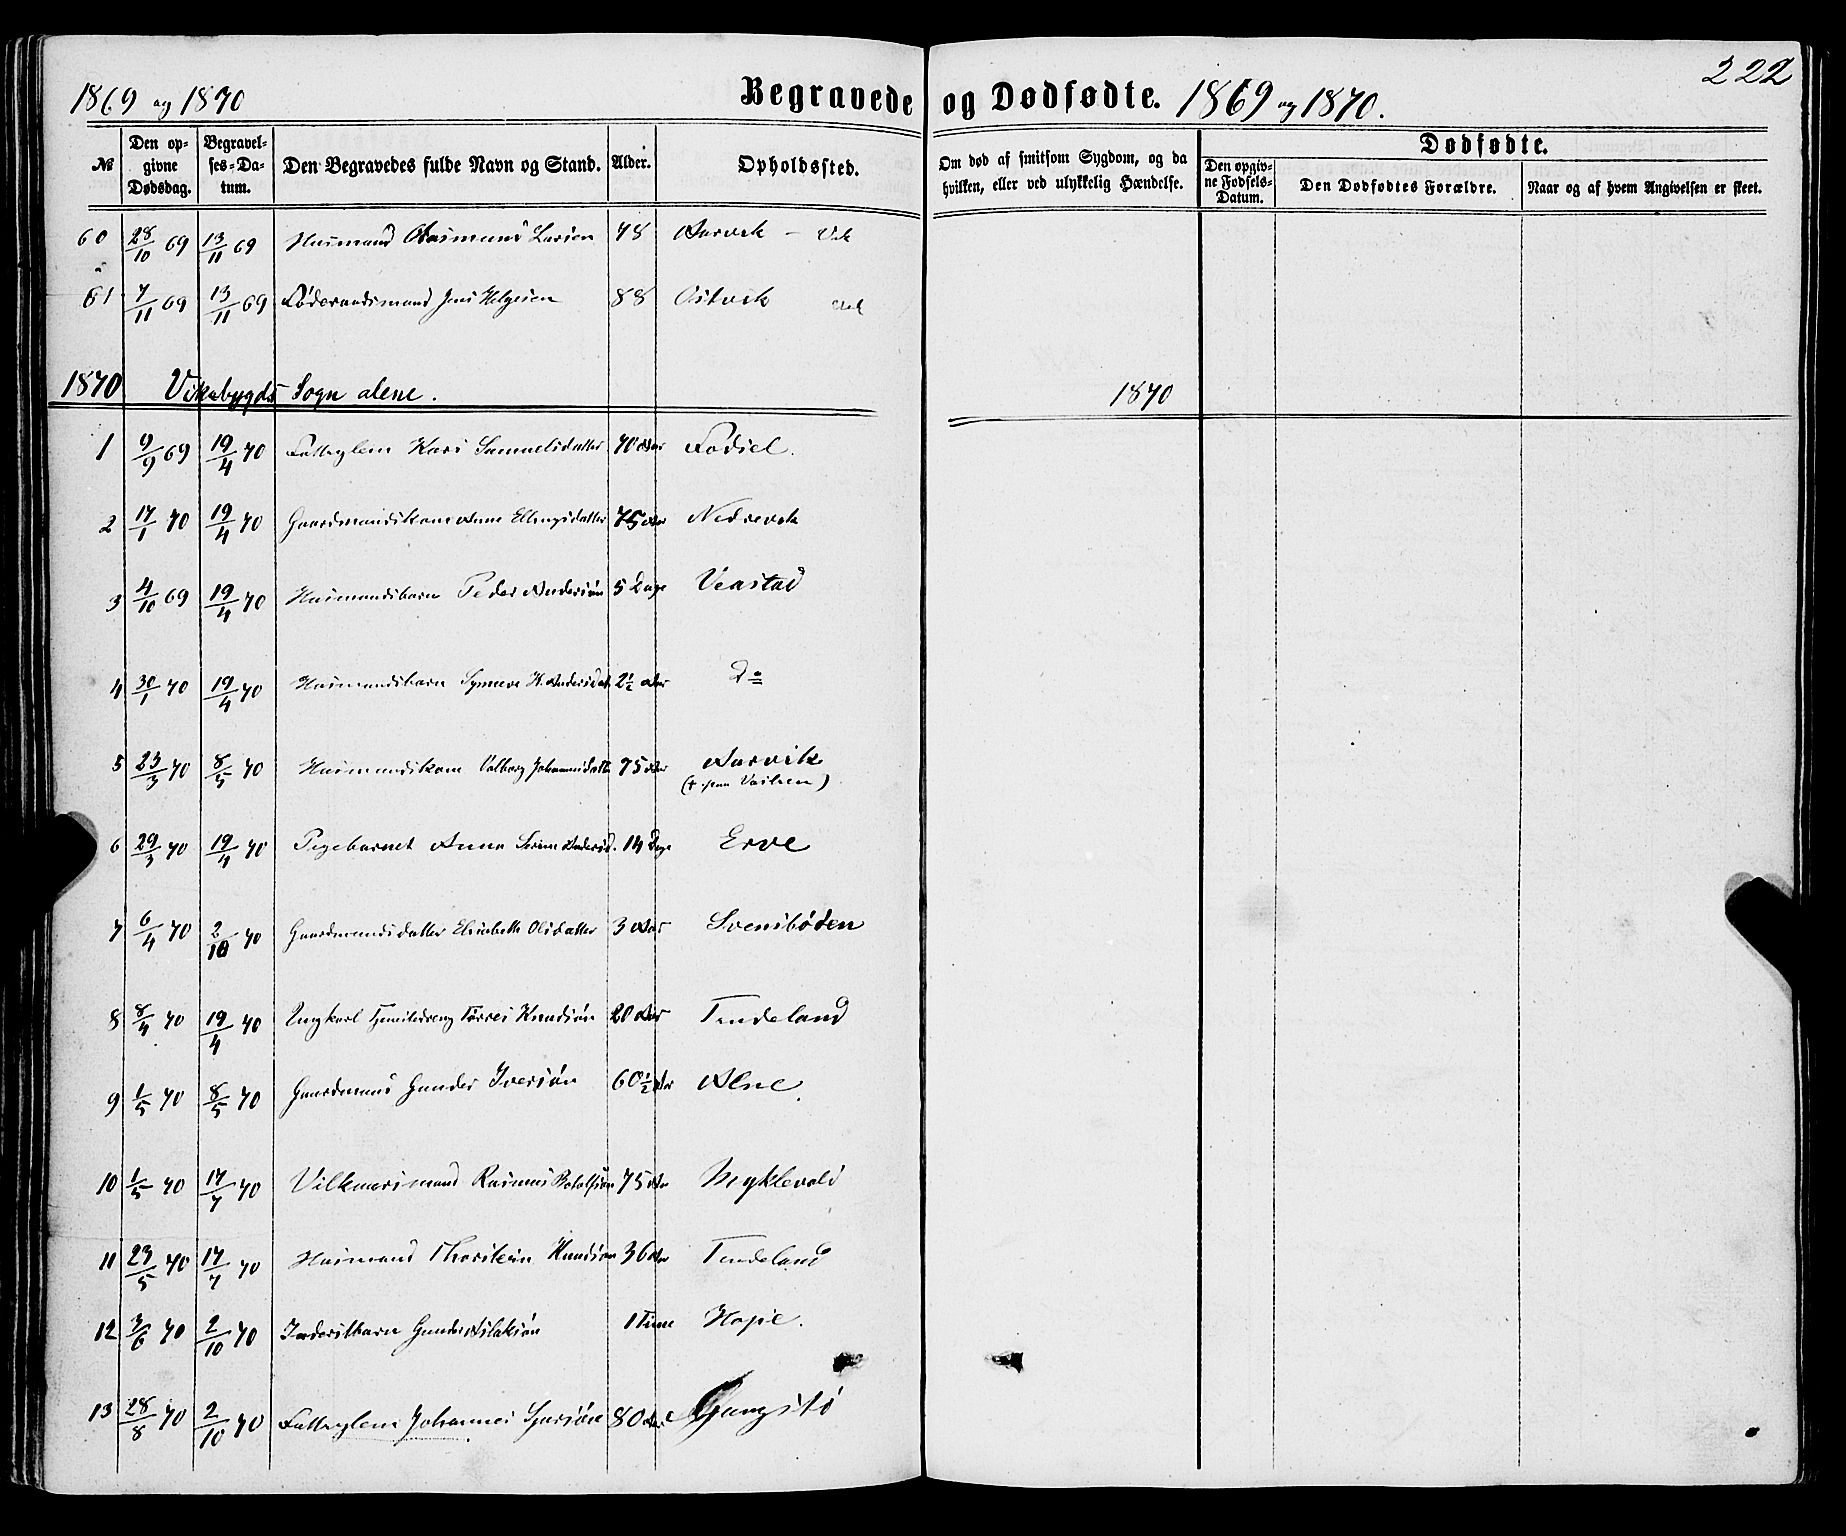 1869 og 1870 Begravede og Dødfødte. 1869 og 1870. 222
№ Den opgivne Dødsdag. Begravelses-Datum. Den Begravedes fulde Navn og Stand. Alder. Opholdssted. Om død af smitsom Sygdom, og da hvilken, eller ved ulykkelig Hændelse. Dødfødte. Den opgivne Fødsels-Datum. Den Dødfødtes Forældre. Naar og af hvem Angivelsen er skeet.
60 28/10 69 13/11 69 Husmand Rasmus Larsen 78 Aarvik - Vik
61 7/11 69 13/11 69 Føderaadsmand Jens Helgesen 88 Østvik
1870 Vikebygds Sogn alene. 1870
1 9/9 69 19/4 70 Fattiglem Kari Samuelsdatter 70 Aar
2 17/1 70 19/4 70 Gaardmandskone Anne Ellingsdatter 75 Aar Nedrevik
3 4/10 69 19/4 70 Husmandsbarn Peder Andersøn 5 Dage Veastad
4 30/1 70 19/4 70 Husmandsbarn Synneve H. Andersdat. 2½ Aar Do
5 23/3 70 8/5 70 Husmandskone Valborg Johannesdatt. 75 Aar Aarvik
6 29/3 70 19/4 70 Pigebarnet Anna Serine Andersd. 14 Dage Erve
7 6/4 70 2/10 70 Gaardmandsdatter Elisabeth Olsdatter 3 Aar Svensbøden
8 8/4 70 19/4 70 Ungkarl Tjenestedreng Torres Knudsøn 20 Aar Tindeland
9 1/5 70 8/5 70 Gaardmand Gunder Iversøn 60½ Aar Alne.
10 1/5 70 17/7 70 Vilkaarsmand Rasmus Botolfsøn 75 Aar Myklevold
11 23/5 70 17/7 70 Husmand Thorstein Knudsøn 36 Aar Tindeland
12 3/6 70 2/10 70 Inderstbarn Gunder Aslaksøn 1 Time
13 28/8 70 2/10 70 Fattiglem Johannes 80 Aar Gangstø